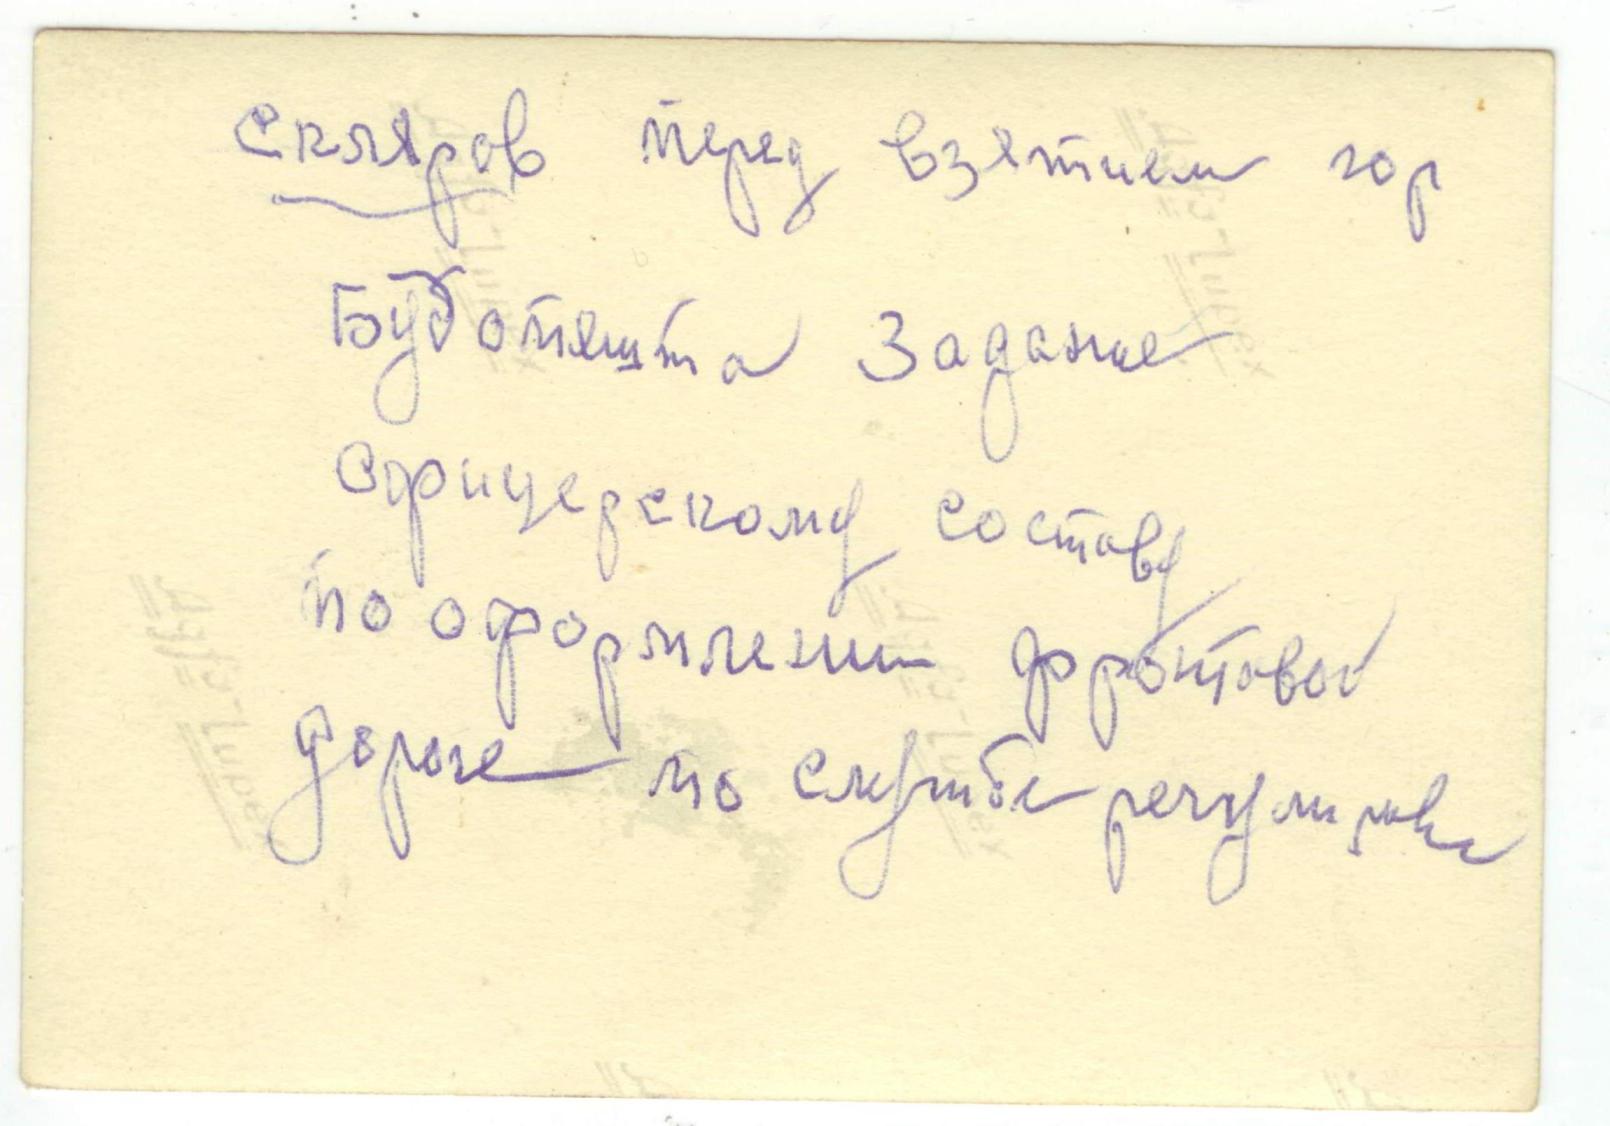 Скляров перед взятием гор
Будопяшта Задание
Офицерскому составу
по оформлении фронтовой
дороге по службе регулировке